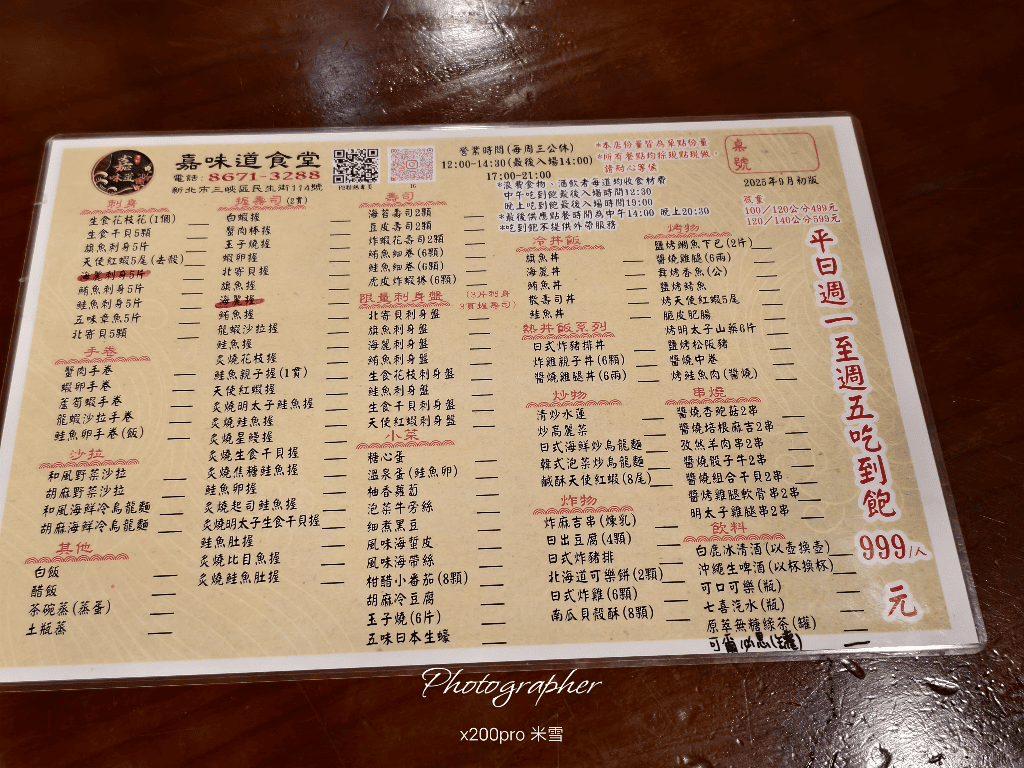 嘉味道食堂
電話:8671-3288
新北市三峽區民生街114號
IG
營業時間(每周三公休)
12:00-14:30(最後入場14:00)
17:00-21:00
*本店份量皆為單點份量
*所有餐點均採現點現做,
請耐心等候
*浪費食物、酒飲者每道均收食材費
中午吃到飽最後入場時間12:30
晚上吃到飽最後入場時間19:00
*最後供應點餐時間為中午14:00 晚上20:30
*吃到飽不提供外帶服務
桌號
2025年9月初版
孩童
100/120公分499元
120/140公分599元
平日週一至週五吃到飽
999/人
元
刺身
生食花枝花(1個)
生食干貝5顆
旗魚刺身5片
天使紅蝦5尾(去殼)
海麗刺身5片
鮪魚刺身5片
鮭魚刺身5片
五味章魚5片
北寄貝5顆
手卷
蟹肉手卷
蝦卵手卷
蘆筍蝦手卷
龍蝦沙拉手卷
鮭魚卵手卷(飯)
沙拉
和風野菜沙拉
胡麻野菜沙拉
和風海鮮冷烏龍麵
胡麻海鮮冷烏龍麵
其他
白飯
醋飯
茶碗蒸(蒸蛋)
土瓶蒸
握壽司(2貫)
白蝦握
蟹肉棒握
玉子燒握
蝦卵握
北寄貝握
旗魚握
海麗握
鮪魚握
龍蝦沙拉握
鮭魚握
炙燒花枝握
鮭魚親子握(1貫)
天使紅蝦握
炙燒明太子鮭魚握
炙燒鮭魚握
炙燒星鰻握
炙燒生食干貝握
炙燒焦糖鮭魚握
鮭魚卵握
炙燒起司鮭魚握
炙燒明太子生食干貝握
鮭魚肚握
炙燒比目魚握
炙燒鮭魚肚握
壽司
海苔壽司2顆
豆皮壽司2顆
炸蝦花壽司2顆
鮪魚細卷(6顆)
鮭魚細卷(6顆)
虎皮炸蝦捲(6顆)
限量刺身盤
(3片刺身
3貫握壽司)
北寄貝刺身盤
旗魚刺身盤
海麗刺身盤
鮪魚刺身盤
生食花枝刺身盤
鮭魚刺身盤
生食干貝刺身盤
天使紅蝦刺身盤
小菜
糖心蛋
溫泉蛋(鮭魚卵)
柚香蘿蔔
泡菜牛蒡絲
細煮黑豆
風味海蜇皮
風味海帶絲
柑醋小番茄(8顆)
胡麻冷豆腐
玉子燒(6片)
五味日本生蠔
冷丼飯
旗魚丼
海麗丼
鮪魚丼
散壽司丼
鮭魚丼
熱丼飯系列
日式炸豬排丼
炸雞親子丼(6顆)
醬燒雞腿丼(6兩)
炒物
清炒水蓮
炒高麗菜
日式海鮮炒烏龍麵
韓式泡菜炒烏龍麵
鹹酥天使紅蝦(8尾)
炸物
炸麻吉串(煉乳)
日出豆腐(4顆)
日式炸豬排
北海道可樂餅(2顆)
日式炸雞(6顆)
南瓜貝殼酥(8顆)
烤物
鹽烤鯛魚下巴(2片)
醬燒雞腿(6兩)
鹽烤香魚(公)
鹽烤鯖魚
烤天使紅蝦5尾
脆皮肥腸
烤明太子山藥6片
鹽烤松阪豬
醬燒中卷
烤鮭魚肉(醬燒)
串燒
醬燒杏鮑菇2串
醬燒培根麻吉2串
孜然羊肉串2串
醬燒骰子牛2串
醬燒組合干貝2串
醬烤雞腿軟骨串2串
明太子雞腿串2串
飲料
白鹿冰清酒(以壺換壺)
沖繩生啤酒(以杯換杯)
可口可樂(瓶)
七喜汽水(瓶)
原萃無糖綠茶(罐)
可爾必思(罐)
Photographer
x200pro 米雪